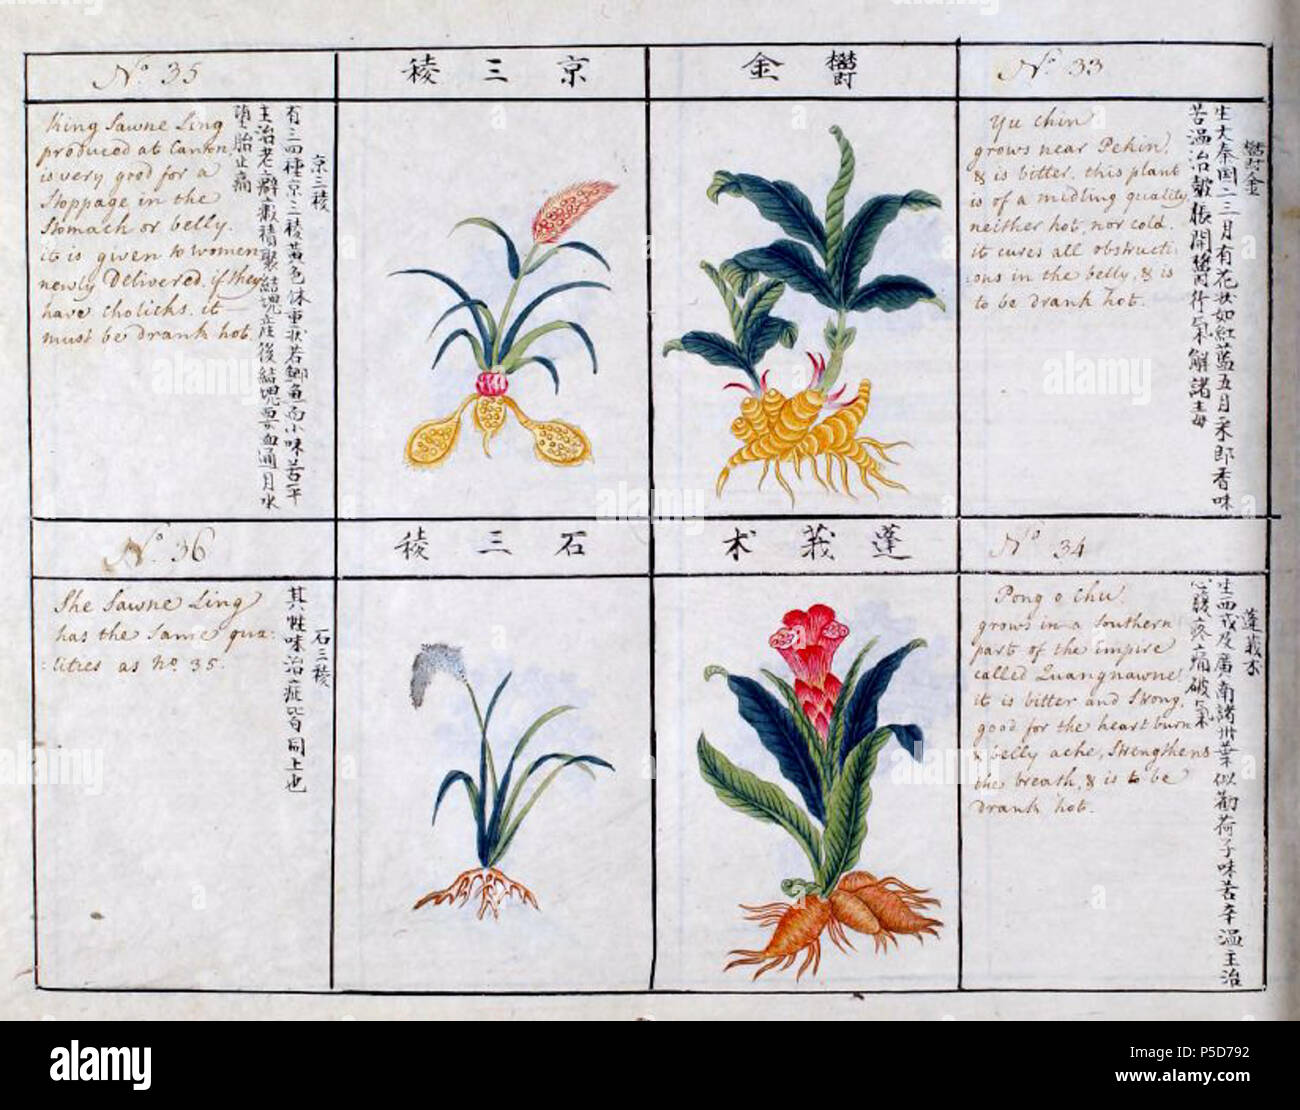 No. 35
King Sawne Ling
produced at Canton,
is very good for a
Stoppage in the
Stomach or belly.
it is given to women
newly Delivered, if they
have cholicks. it
must be drank hot.
京三稜
有三四種京三稜黃色体重狀若鯽魚而小味苦平
主治老癖癥瘕積聚結塊產後結塊惡血通月水
墮胎止痛
京三稜
鬱金
No. 33
Yu chin
grows near Pekin,
& is bitter. this plant
is of a midling quality,
neither hot, nor cold.
it cures all obstructi:
:ons in the belly, & is
to be drank hot.
鬱金
生大秦国二三月有花狀如紅藍五月采即香味
苦温治皷脹開鬱行氣解諸毒
No. 36
She Sawne Ling
has the same qua:
:lities as No. 35.
石三稜
其性味治症皆同上也
石三稜
蓬莪术
No. 34
Pong o Chu.
grows in a southern
part of the empire
called Quangnawne
it is bitter and strong,
good for the heart burn
& belly ache, Strengthens
the breath, & is to be
drank hot.
蓬莪术
生西戎及廣南諸州葉似蘘荷子味苦辛温主治
心腹疼痛破氣
alamy
Image ID: P5D792
www.alamy.com